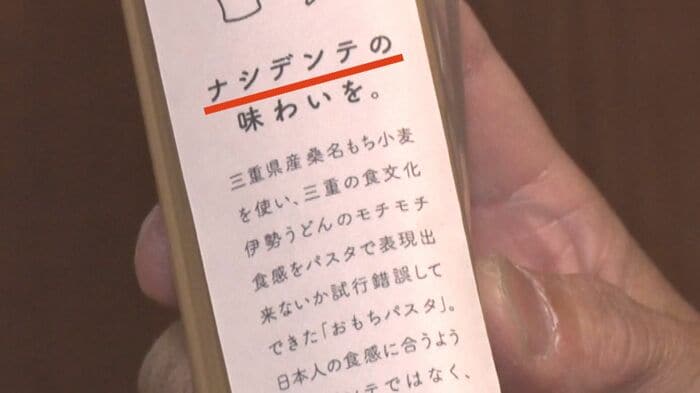 ナシデンテの
味わいを。
三重県産桑名もち小麦
を使い、三重の食文化
伊勢うどんのモチモチ
食感をパスタで表現出
来ないか試行錯誤して
できた「おもちパスタ」。
日本人の食感に合うよう
テではなく、